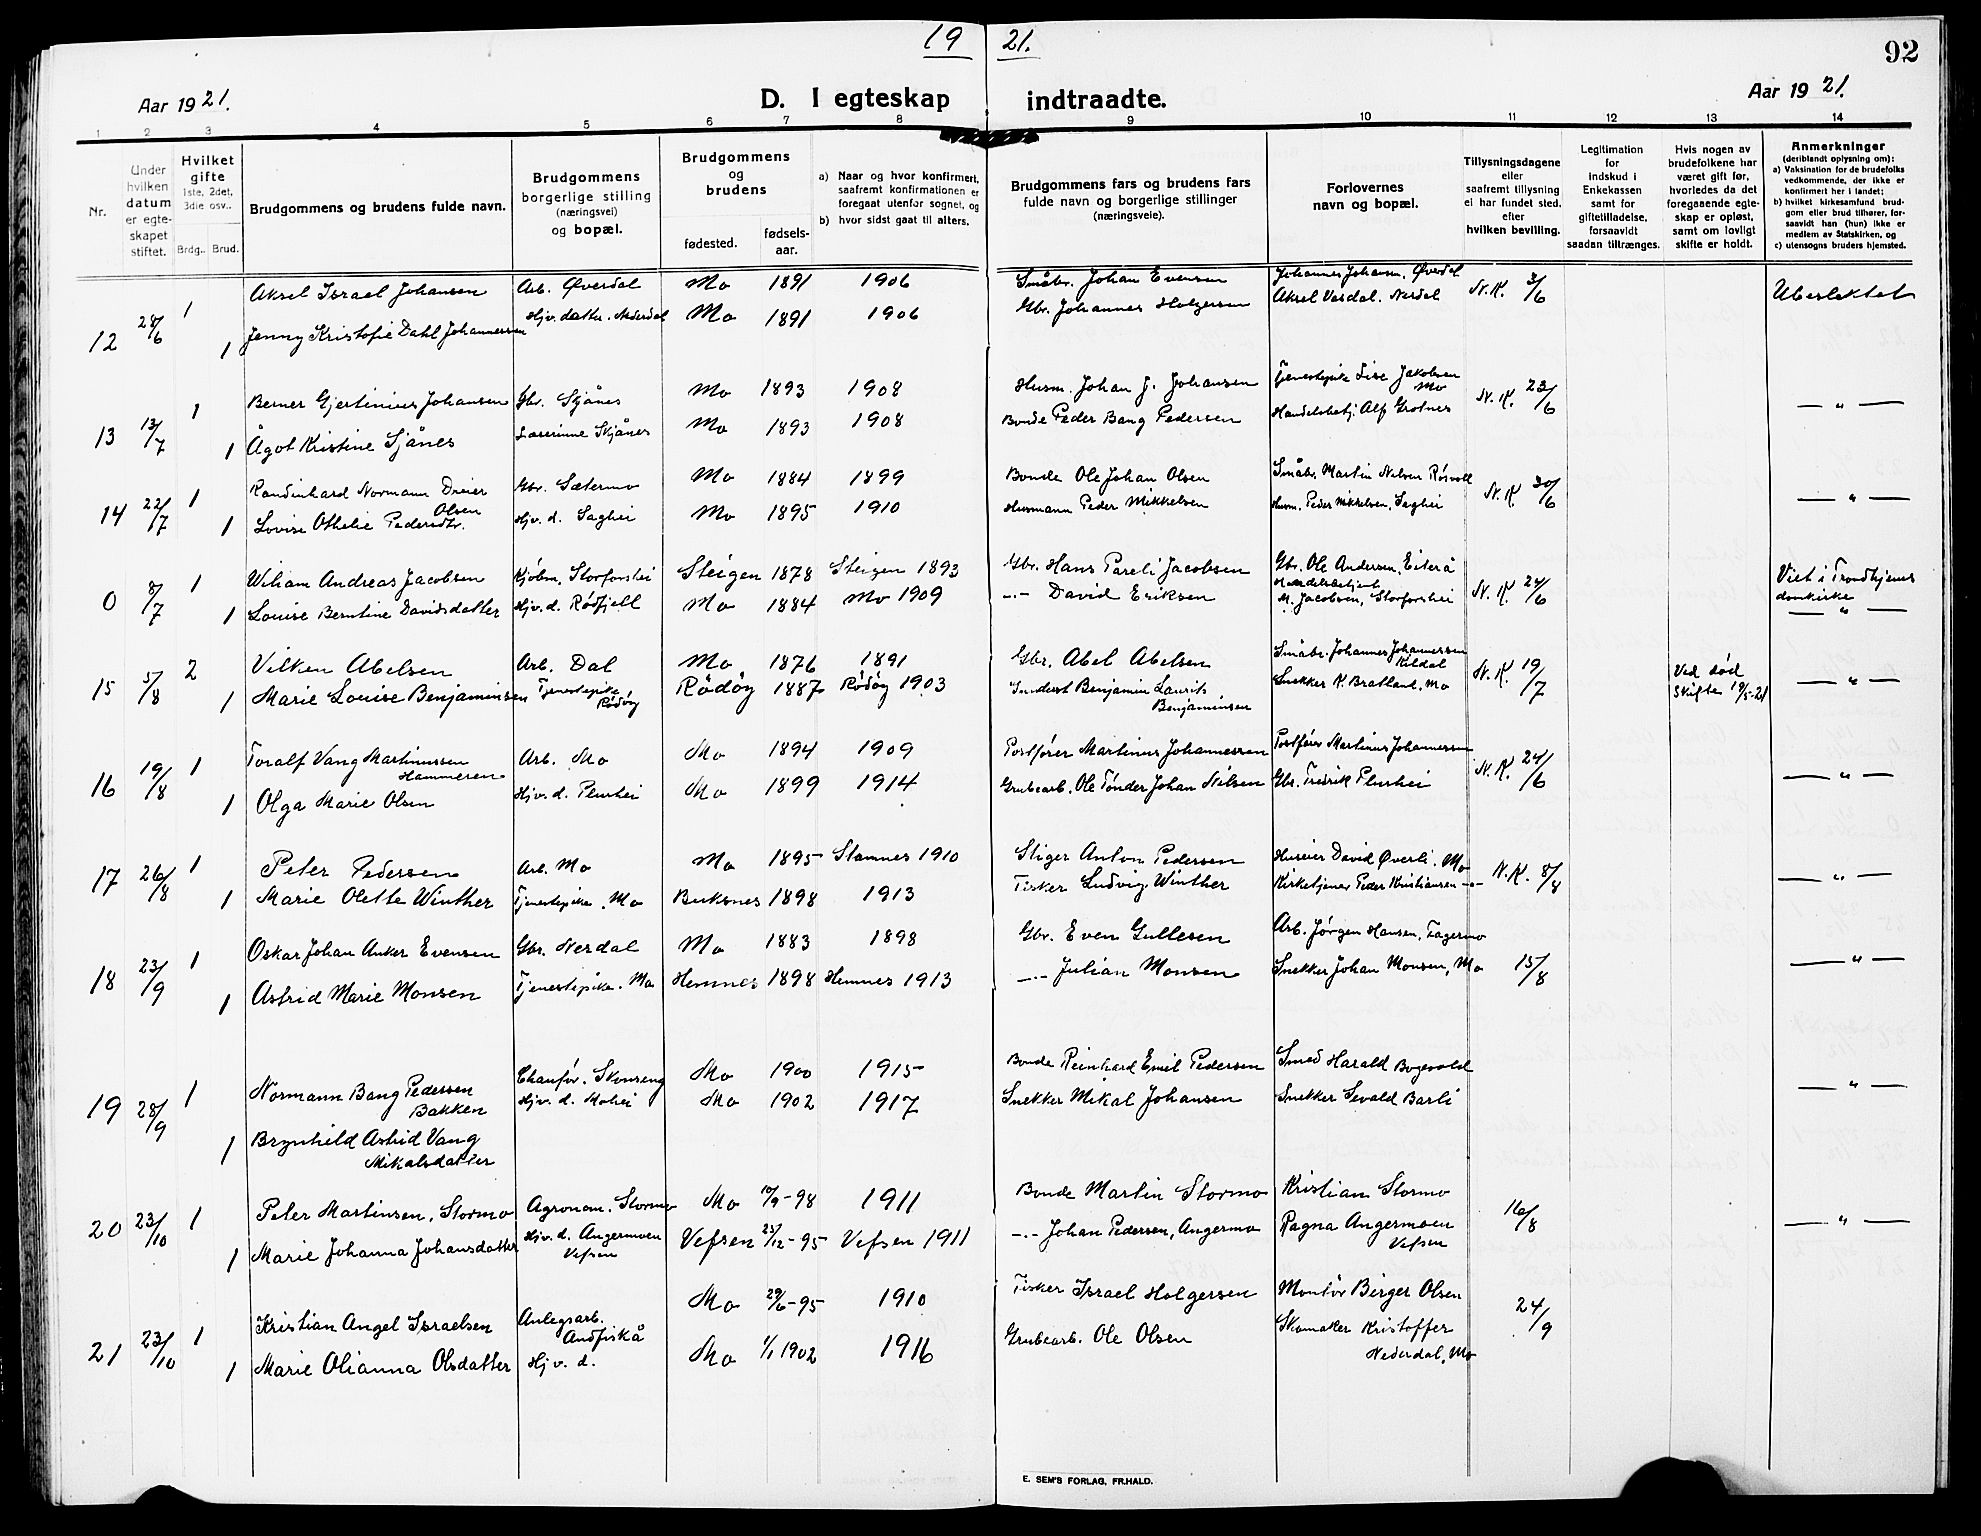 19 21.
92
Aar 1921.
D. I egteskap indtraadte.
Aar 1921.
1 2 3 4 5 6 7 8 9 10 11 12 13 14
Nr.
Under hvilken datum er egteskapet stiftet.
Hvilket gifte 1ste, 2det, 3die osv..
Brdg.. Brud.
Brudgommens og brudens fulde navn.
Brudgommens borgerlige stilling (næringsvei) og bopæl.
Brudgommens og brudens
fødested. fødselsaar.
a) Naar og hvor konfirmert, saafremt konfirmationen er foregaat utenfor sognet, og
b) hvor sidst gaat til alters.
Brudgommens fars og brudens fars fulde navn og borgerlige stillinger (næringsveie).
Forlovernes navn og bopæl.
Tillysningsdagene eller saafremt tillysning ei har fundet sted. efter hvilken bevilling.
Legitimation for indskud i Enkekassen samt for giftetilladelse, forsaavidt saadan tiltrænges.
Hvis nogen av brudefolkene har været gift før, hvorledes da det foregaaende egteskap er opløst, samt om lovligt skifte er holdt.
Anmerkninger (deriblandt oplysning om):
a) Vaksination for de brudefolks vedkommende, der ikke er konfirmert her i landet;
b) hvilket kirkesamfund brudgom eller brud tilhører, forsaavidt han (hun) ikke er medlem av Statskirken, og
c) utensogns bruders hjemsted.
12 28/6 1 Aksel Israel Johansen Arb. Øverdal Mo 1891 1906 Småbr. Johan Evensen Johannes Johansen, Øverdal N.K. 3/6 Ubeslektet
1 Jenny Kristofie Dahl Johannessen Hjv. datter. Nederdal Mo 1891 1906 Gbr. Johannes Holgersen Aksel Verdal. Nerdal
13 13/7 1 Berner Gjertinius Johansen Gbr. Skjånes Mo 1893 1908 Husm. Johan J. Johansen Tjenestepike Lise Jakobsen Mo N.K. 23/6 — " —
1 Ågot Kristine Sjånes Lærerinne Skjånes Mo 1893 1908 Bonde Peder Bang Pedersen Handelsbetj. Alf Grotnes
14 22/7 1 Randinhard Normann Dreier Olsen Gbr. Sætermo Mo 1884 1899 Bonde Ole Johan Olsen Småbr. Martin Nilsen Røsvoll N.K. 30/6 — " —
1 Lovise Othelie Pedersdtr. Hjv. d. Saghei Mo 1895 1910 Husmann Peder Mikkelsen Husm. Peder Mikkelsen, Saghei
0 8/7 1 Wiliam Andreas Jacobsen Kjøbm. Storforshei Steigen 1878 Steigen 1893 Gbr. Hans Pareli Jacobsen Gbr. Ole Andersen, Eiterå N.K. 24/6 Viet i Trondhjems domkirke
1 Louise Berntine Davidsdatter Hjv. d. Røfjell Mo 1884 Mo 1909 —"— David Eriksen Handelsbetjent M. Jacobsen, Storforshei — " —
15 5/8 2 Vilken Abelsen Arb. Dal Mo 1876 1891 Gbr. Abel Abelsen Småbr. Johannes Johannessen Kildal N.K. 19/7 Ved død Skifte 19/5-21 — " —
1 Marie Louise Benjaminsen Tjenestepike Rødøy Rödöy 1887 Rödöy 1903 Benjamin Laurits Benjaminsen Snekker K. Bratland, Mo
16 19/8 1 Toralf Vang Martinussen Hammeren Arb. Mo Mo 1894 1909 Postfører Martinus Johannessen Postfører Martinus Johannessen N.K. 24/6 — " —
1 Olga Marie Olsen Hjv. d. Plurhei Mo 1899 1914 Grubearb. Ole Tønder Johan Nilsen Gbr. Fredrik Plurhei
17 26/8 1 Peter Pedersen Arb. Mo Mo 1895 Stamnes 1910 Stiger Anton Pedersen Huseier David Øverli. Mo N.K. 8/8 — " —
1 Marie Olette Winther Tjenestepike. Mo Buksnes 1898 1913 Fisker Ludvig Winther Kirketjener Peder Kristiansen —"—
18 23/9 1 Oskar Johan Anker Evensen Gbr. Nerdal Mo 1883 1898 Gbr. Even Gullesen Arb. Jørgen Hansen, Fagermo 15/8 — " —
1 Astrid Marie Monsen Tjenestepike. Mo Hemnes 1898 Hemnes 1913 —"— Julian Monsen Snekker Johan Monsen, Mo
19 28/9 1 Normann Bang Pedersen Bakken Chaufør. Skonseng Mo 1900 1915 Bonde Reinhard Emil Pedersen Smed Harald Bogevold — " —
1 Brynhild Astrid Vang Mikalsdatter Hjv. d. Mohei Mo 1902 1917 Snekker Mikal Johansen Snekker Sevald Barli
20 23/10 1 Peter Martinsen, Stormo Agronom. Stormo Mo 10/9-98 1911 Bonde Martin Stormo Kristian Stormo 16/8 — " —
1 Marie Johanna Johansdatter Hjv. d. Angermoen Vefsen Vefsen 25/12-95 Vefsen 1911 —"— Johan Pedersen, Angermo Ragna Angermoen Vefsen
21 23/10 1 Kristian Angel Israelsen Anlegsarb. Andfiskå Mo 29/6-95 1910 Fisker Israel Holgersen Montör Birger Olsen 24/9
1 Marie Olianna Olsdatter Hjv. d. Mo 1/1 1902 1916 Grubearb. Ole Olsen Skomaker Kristoffer Nederdal, Mo
E. SEM'S FORLAG, FR.HALD.